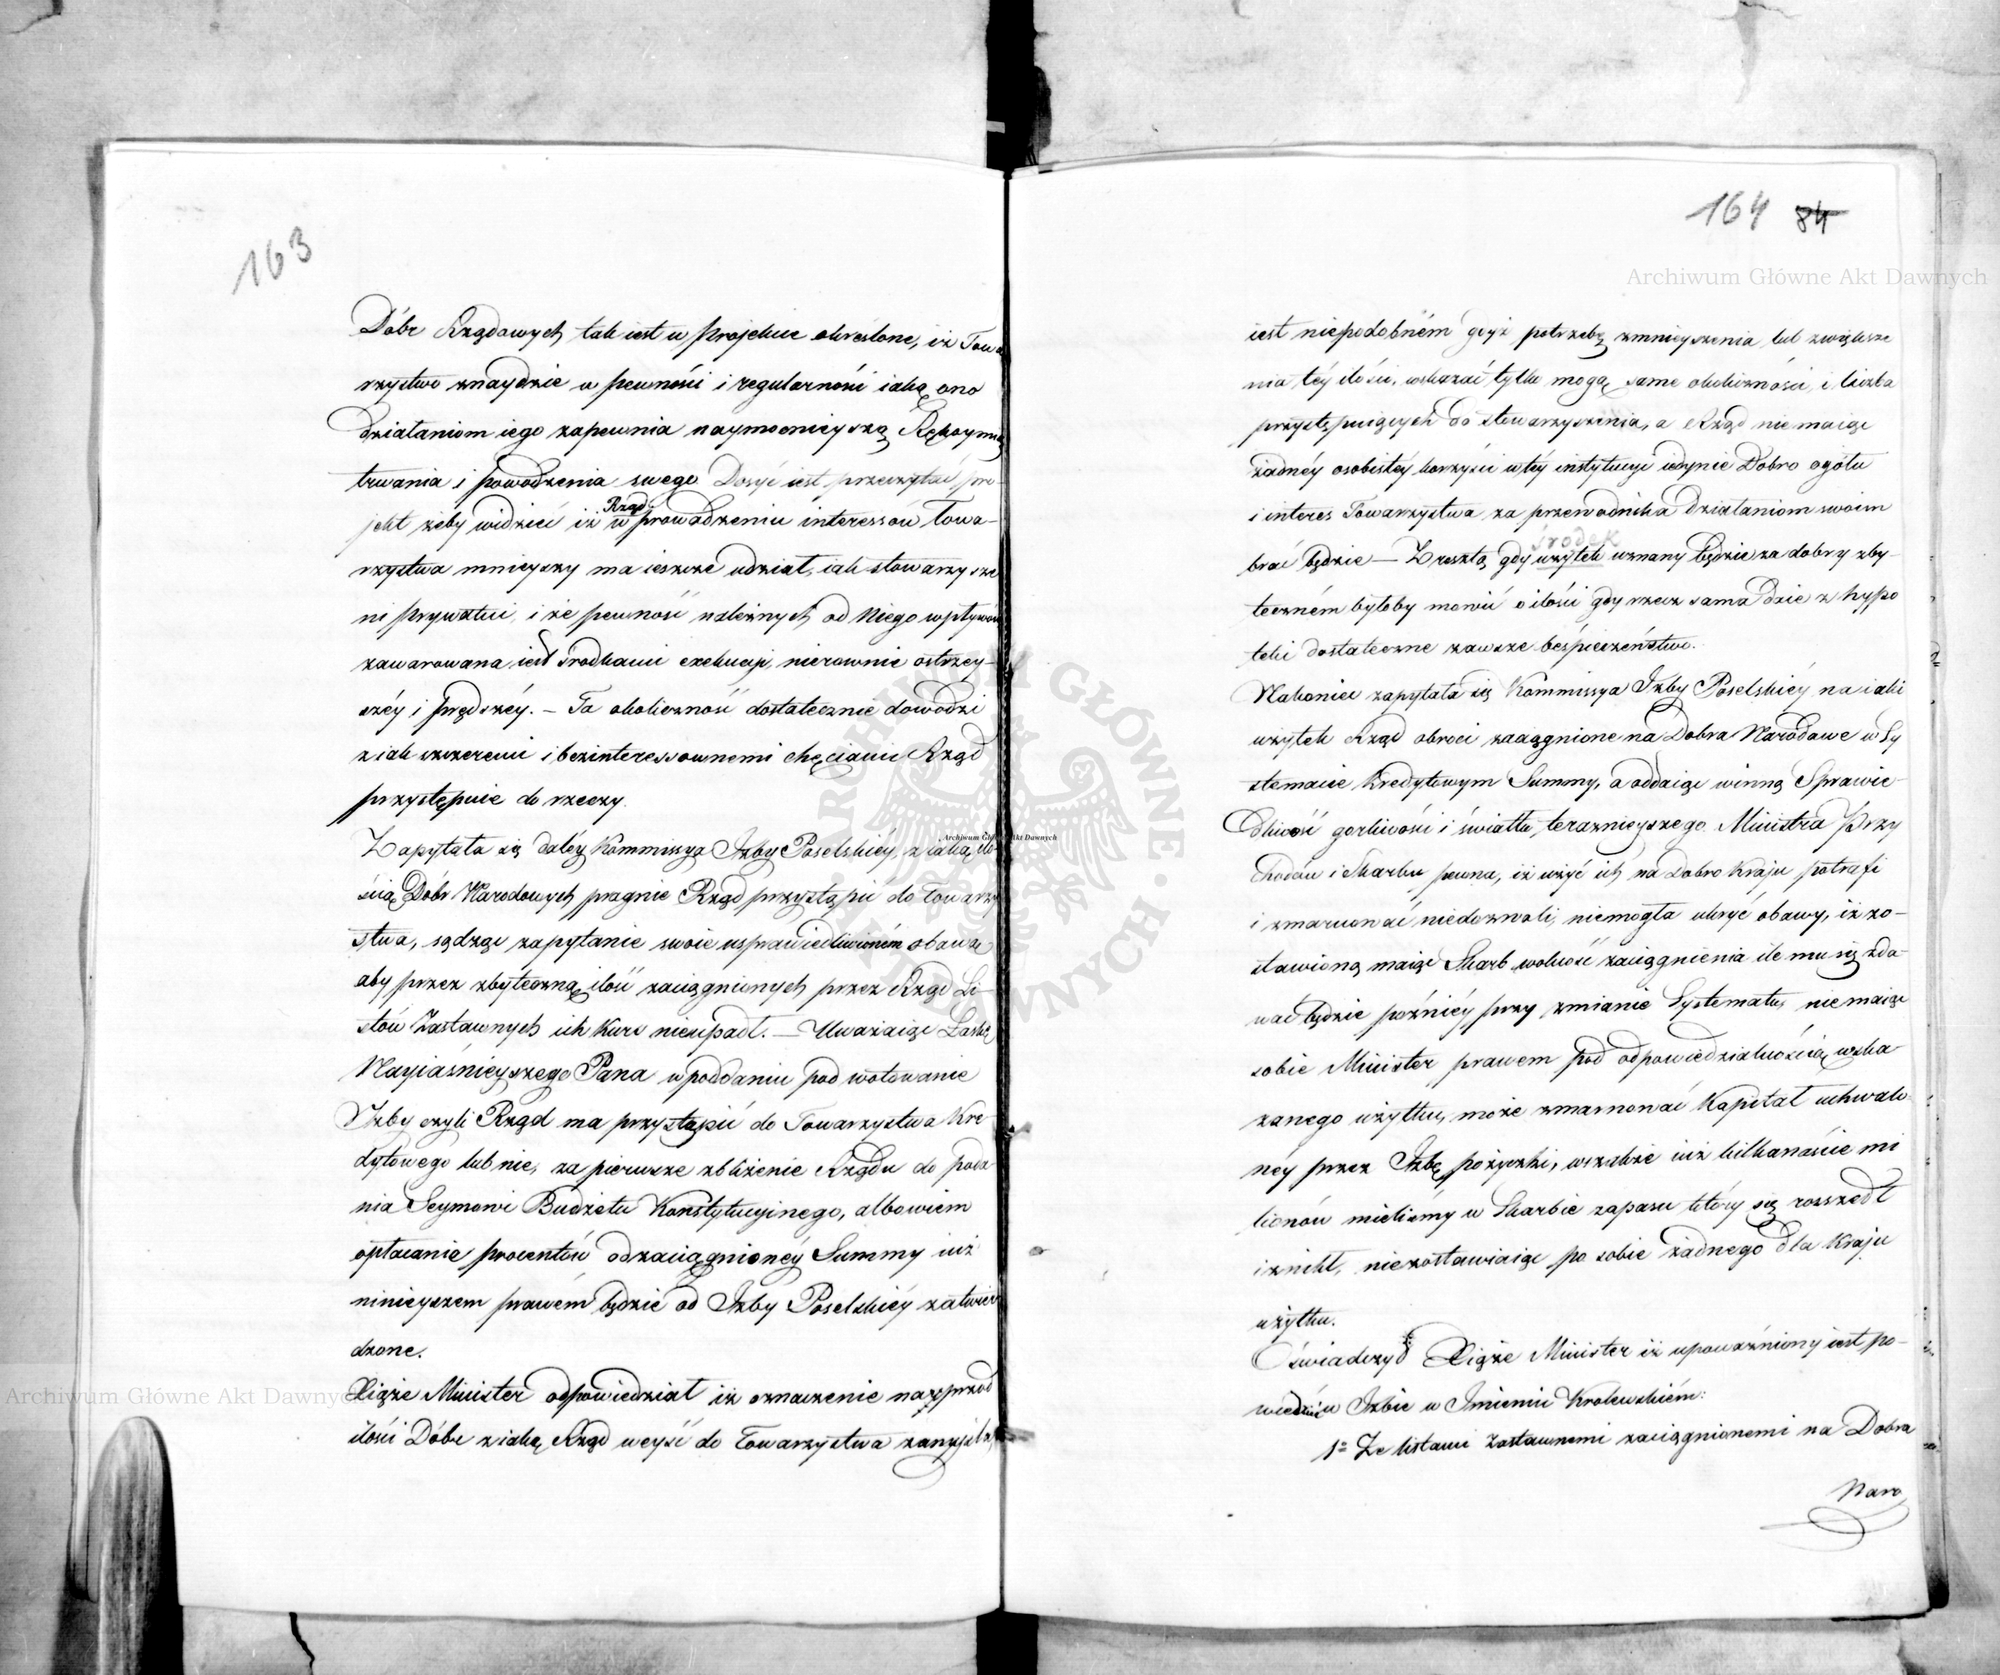 163
Dóbr Rządowych tak iest w Projekcie określone, iż Towa
rzystwo znaydzie w pewności i regularności iaką ono
działaniom iego zapewnia naymocnieyszą Rękoymię
trwania i powodzenia swego Dosyć iest przeczytać pro-
jekt żeby widzieć iż Rząd w prowadzeniu interessów Towa-
rzystwa mnieyszy ma ieszcze udział, iak stowarzysze
ni Prywatni, i że pewność należnych od Niego wpływów
zawarowana iest srodkami exekucji, nierownie ostrzey-
széy i prędszéy. – Ta okoliczność dostatecznie dowodzi
z iak szczeremi i bezinteressownemi chęciami Rząd
przystępuie do rzeczy.
Zapytała się daléy Kommissya Izby Poselskiéy, z iaką ilo-
ścią Dóbr Narodowych pragnie Rząd przystąpić do towarzy
stwa, sądząc zapytanie swoie usprawiedliwioném obawą
aby przez zbyteczną ilość zaciągnionych przez Rząd Li-
stów Zastawnych ich Kurs nieupadł. – Uważaiąc Łaskę
Nayiaśnieyszego Pana w poddaniu pod wotowanie
Izby czyli Rząd ma przystąpić do Towarzystwa Kre-
dytowego lub nie, za pierwsze zbliżenie Rządu do poda-
nia Seymowi Budżetu Konstytucyinego, albowiem
opłacanie procentów od zaciągnionéy Summy iuż
ninieyszem prawém będzie od Izby Poselskiéy zatwier
dzone.
Xiąże Minister odpowiedział iż oznaczenie nayprzód
ilości Dóbr z iaką Rząd weyść do Towarzystwa zamyśla,
164 84
iest niepodobném gdyż potrzebę zmnieyszenia lub zwiększe
nia téy ilości, wskazać tylko mogą same okoliczności, i liczba
przystępuiących do stowarzyszenia, a Rząd niemaiąc
żadnéy osobistéy korzyści w téy instytucyi iedynie Dobro ogółu
i interes Towarzystwa za przewodnika działaniom swoim
środek
brać będzie – Zresztą gdy użytek uznany będzie za dobry zby-
teczném byłoby mowić o ilości gdy rzecz sama daie z hypo
teki dostateczne zawsze beśpieczeństwo.
Nakoniec zapytała się Kommissya Izby Poselskiéy na iaki
użytek Rząd obroci zaciągnione na Dobra Narodowe w Sy
stemacie Kredytowym Summy, a oddaiąc winną Sprawie
dliwość gorliwości i światłu teraznieyszego Ministra Przy
chodów i Skarbu pewna, iż użyć ich na Dobro Kraju potrafi
i zmarnować niedozwoli, niemogła ukryć obawy, iż zo-
stawioną maiąc Skarb wolność zaciągnienia ile mu się zda-
wać będzie poźniéy przy zmianie Systematu, niemaiąc
sobie Minister prawem pod odpowiedzialnością wska-
zanego użytku, może zmarnować Kapitał uchwalo-
néy przez Izbę pożyczki, wszakże iuż kilkanaście mi
lionów mieliśmy w Skarbie zapasu który się rozszedł
i znikł, niezostawiaiąc po sobie żadnego dla Kraju
użytku.
Oświadczył Xiąże Minister iż upoważniony iest po-
wiedzieć w Izbie w Imieniu Krolewskiém:
1º Ze listami zastawnemi zaciągnionemi na Dobra
Naro
Archiwum Główne Akt Dawnych
Archiwum Główne Akt Dawnych
Archiwum Główne Akt Dawnych
ARCHIWUM GŁÓWNE AKT DAWNYCH